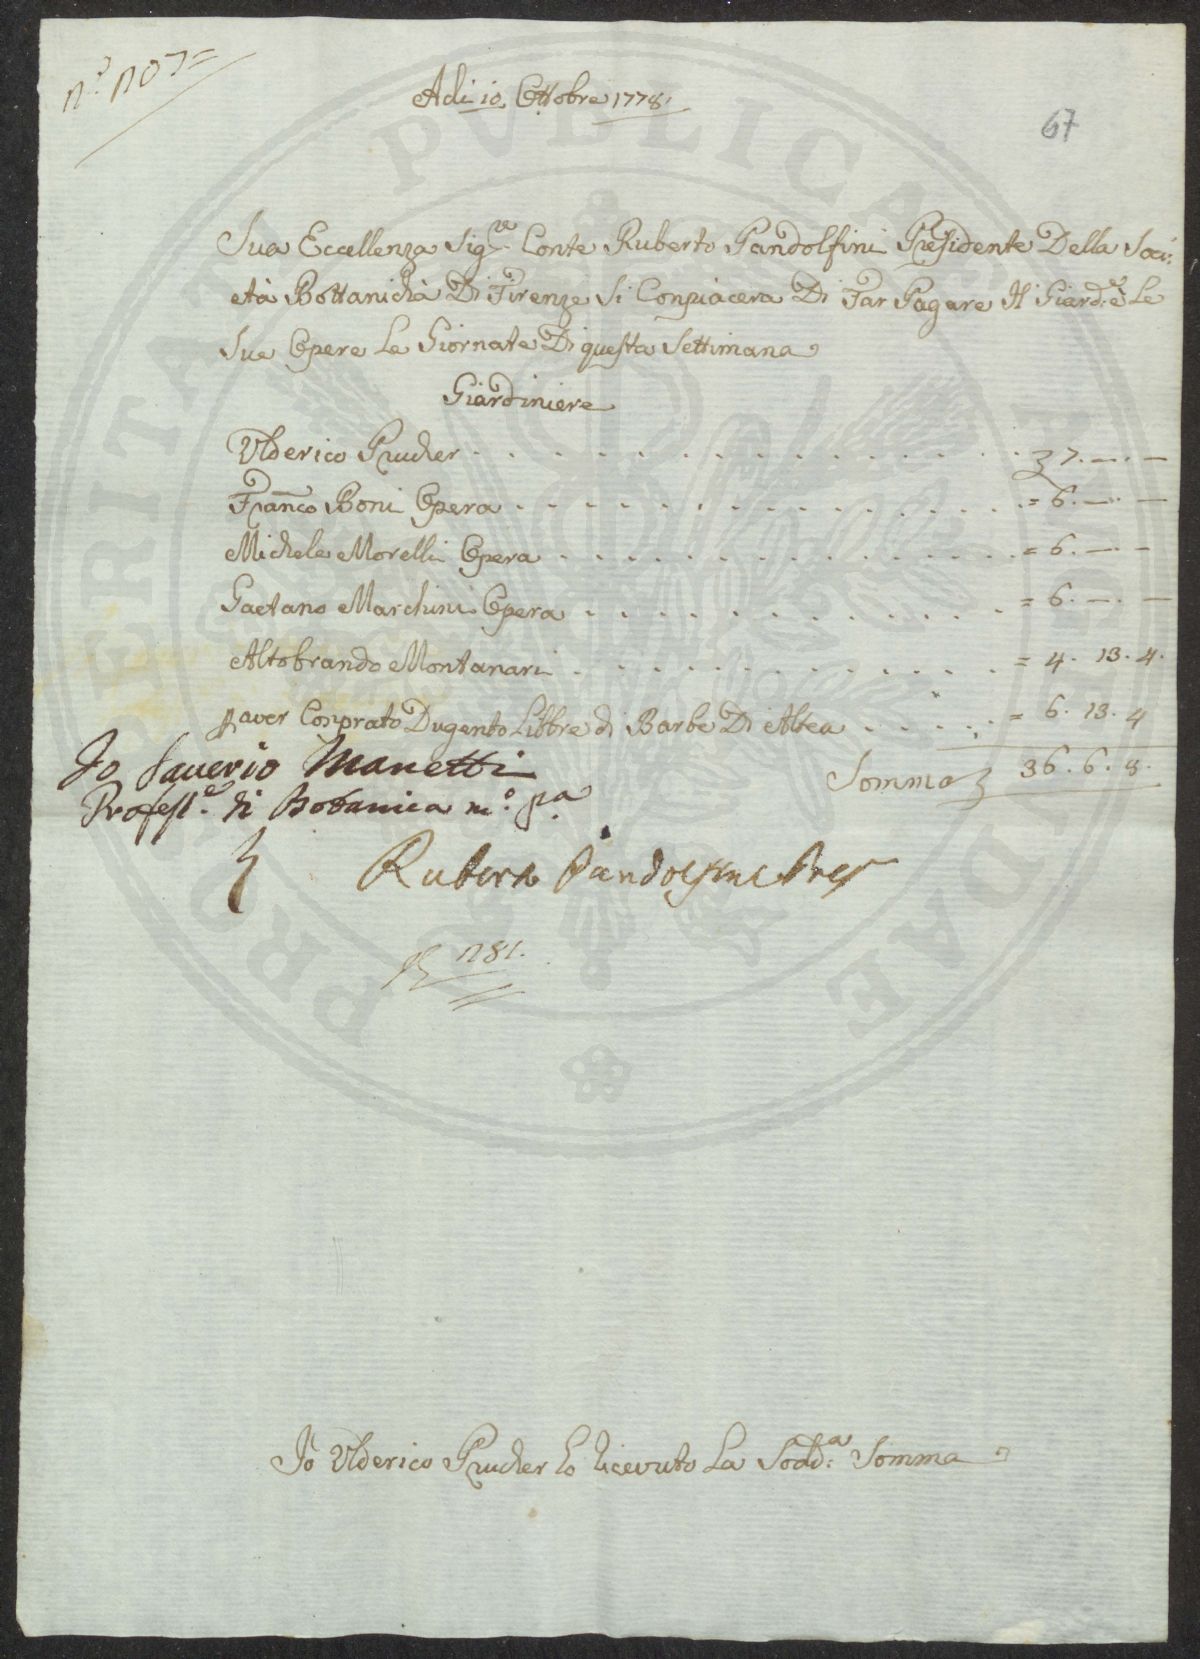 n.° 1107=
Adi 10. Ottobre 1778.
67
Sua Eccellenza Sig.re Conte Ruberto Pandolfini Presidente Della Soci:
età Bottanicha Di Firenze Si Conpiacera Di Far Pagare Il Giard:e e Le
Sue Opere Le Giornate Di questa Settimana
Giardiniere
Ulderico Prucher . . . . . . . . . . . . . . . . 7. — . —
Franco Boni Opera . . . . . . . . . . . . . . . = 6. — . —
Michele Morelli Opera . . . . . . . . . . . . . = 6. — . —
Gaetano Marchini Opera . . . . . . . . . . . . . = 6. — . —
Altobrando Montanari . . . . . . . . . . . . . = 4. 13. 4.
p aver Conprato Dugento Libbre di Barbe Di Altea . . . . . . = 6. 13. 4
Somma 36. 6. 8.
Io Saverio Manetti
Profess.e di Botanica m.o p.a
Ruberto Pandolfini Pres
1181.
Io Ulderico Prucher ho ricevuto La Sodd.a Somma
PROSPERITATI PVBLICAE AVGENDAE